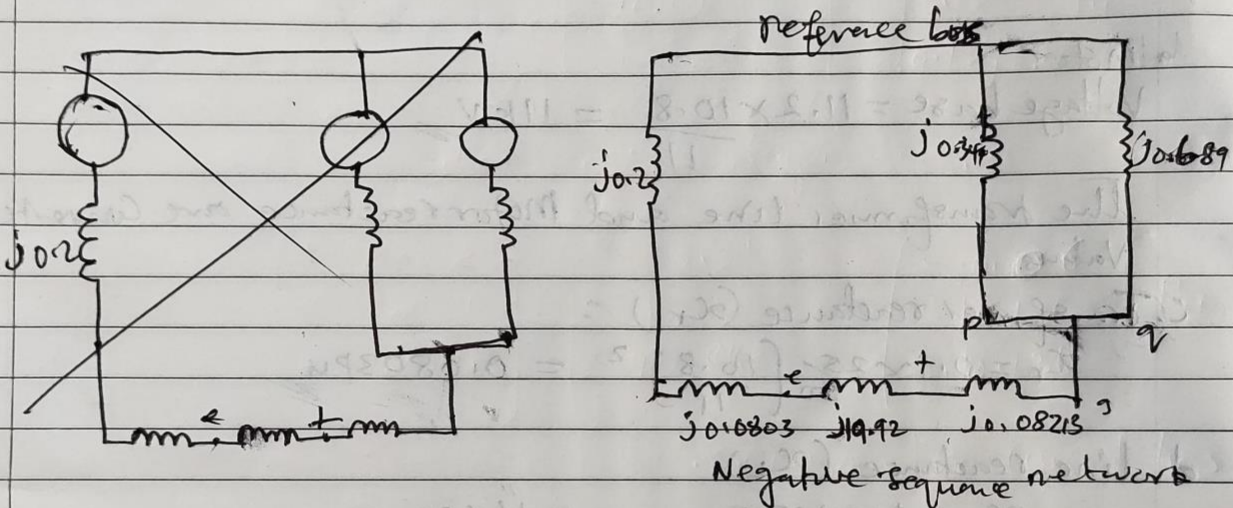 reference bus
j0.2
j0.2
j0.344
j0.689
p
q
e
+
e
+
g
j0.0803
j19.92
j0.08213
Negative sequence network